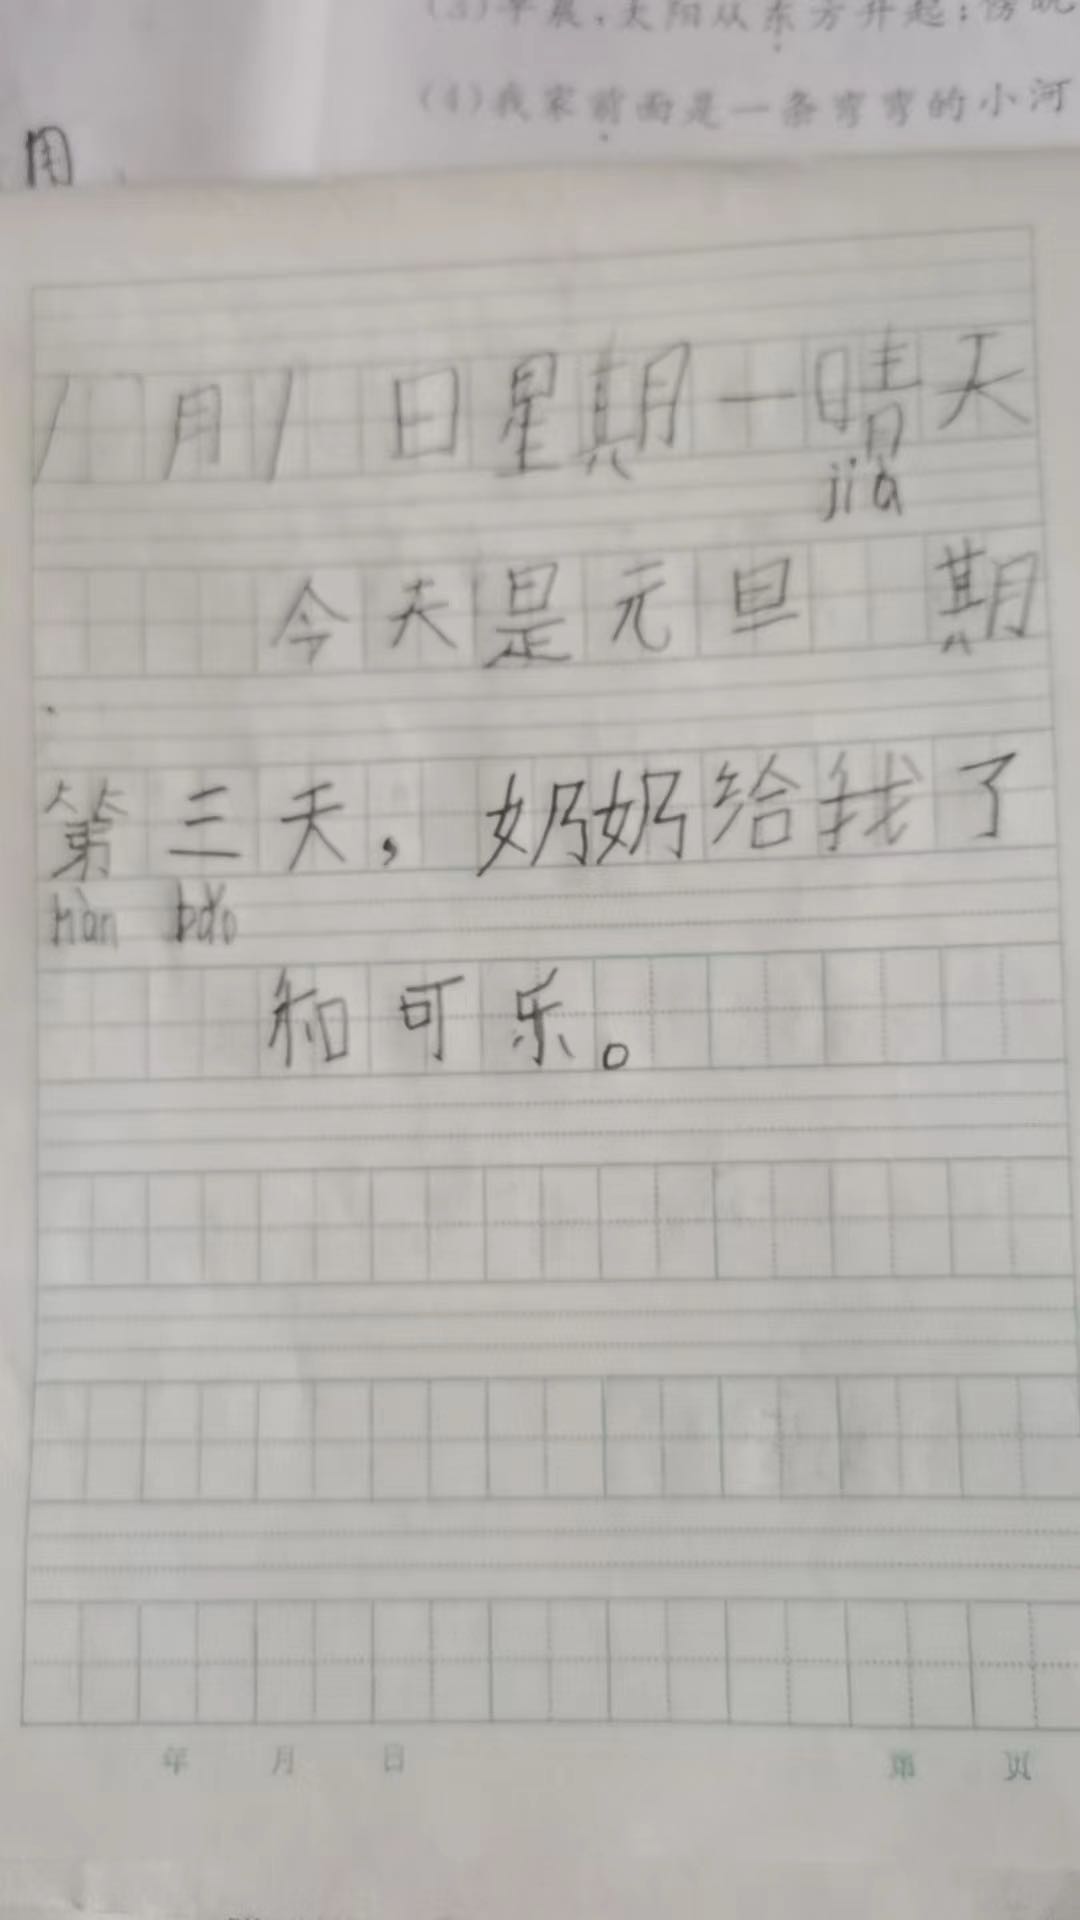 (3)早晨,太阳从东方升起;傍晚
(4)我家前面是一条弯弯的小河
用
1月1日星期一晴天
jià
今天是元旦 期
第三天，奶奶给我了
hàn bǎo
和可乐。
年 月 日 第 页